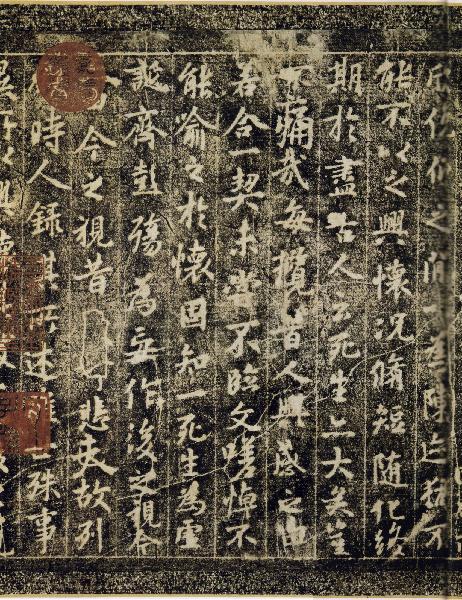 俛仰之間以為陳迹猶不
能不以之興懷況脩短隨化終
期於盡古人云死生亦大矣豈
不痛哉每攬昔人興感之由
若合一契未嘗不臨文嗟悼不
能喻之於懷固知一死生為虛
誕齊彭殤為妄作後之視今
今之視昔悲夫故列
時人錄其所述殊事
異所以興懷其致